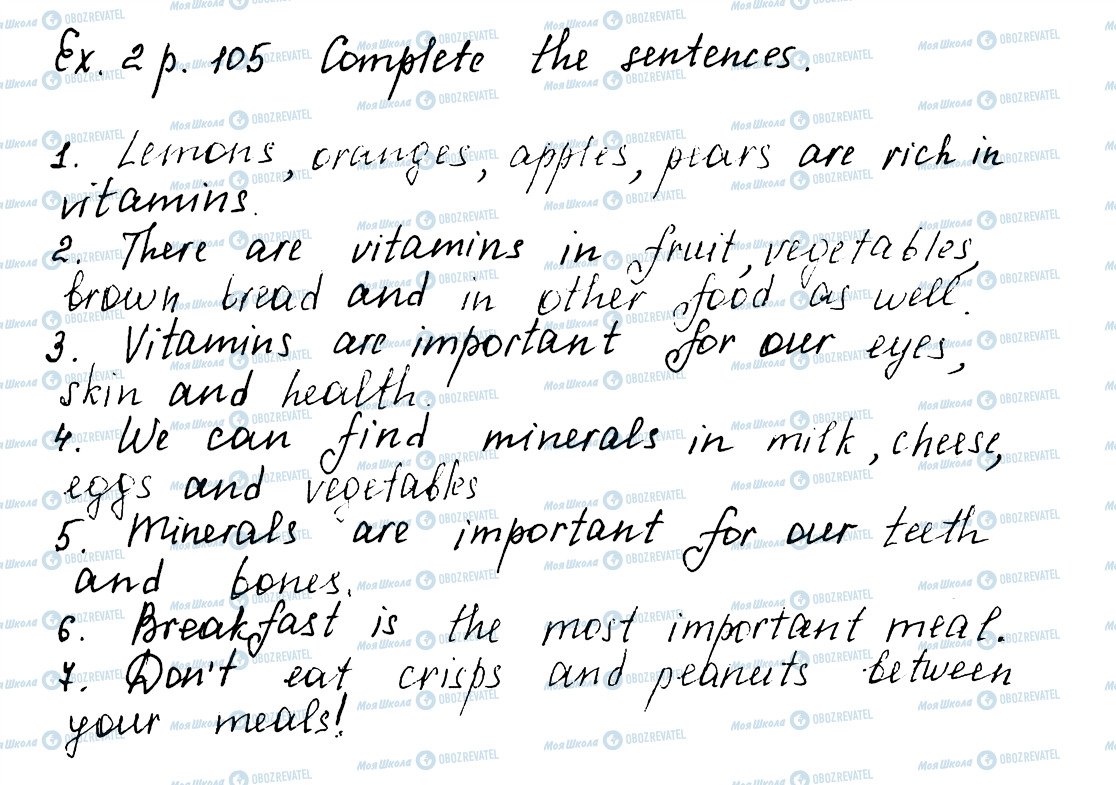 Ex. 2 p. 105 Complete the sentences.
1. Lemons, oranges, apples, pears are rich in
vitamins.
2. There are vitamins in fruit, vegetables,
brown bread and in other food as well.
3. Vitamins are important for our eyes,
skin and health.
4. We can find minerals in milk, cheese,
eggs and vegetables
5. Minerals are important for our teeth
and bones.
6. Breakfast is the most important meal.
7. Don't eat crisps and peanuts between
your meals!